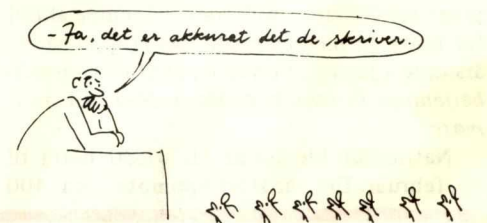 - Ja, det er akkurat det de skriver.